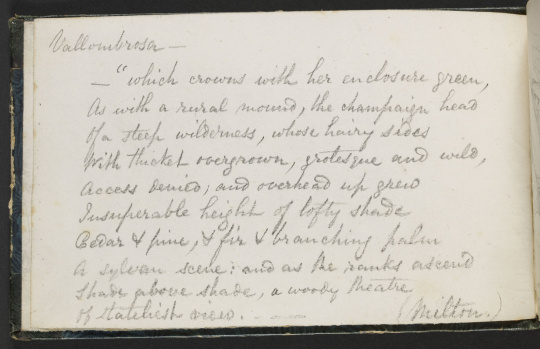 Vallombrosa —
— "which crowns with her enclosure green,
As with a rural mound, the champaign head
Of a steep wilderness, whose hairy sides
With thicket overgrown, grotesque and wild,
Access denied; and overhead up grew
Insuperable height of lofty shade
Cedar & pine, & fir & branching palm
A sylvan scene: and as the ranks ascend
Shade above shade, a woody theatre
Of stateliest view. — —— (Milton.)